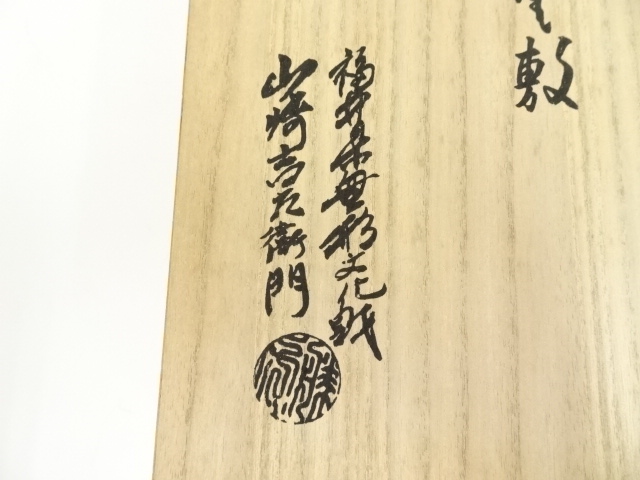 敷
福井県無形文化財
山崎吉左衛門